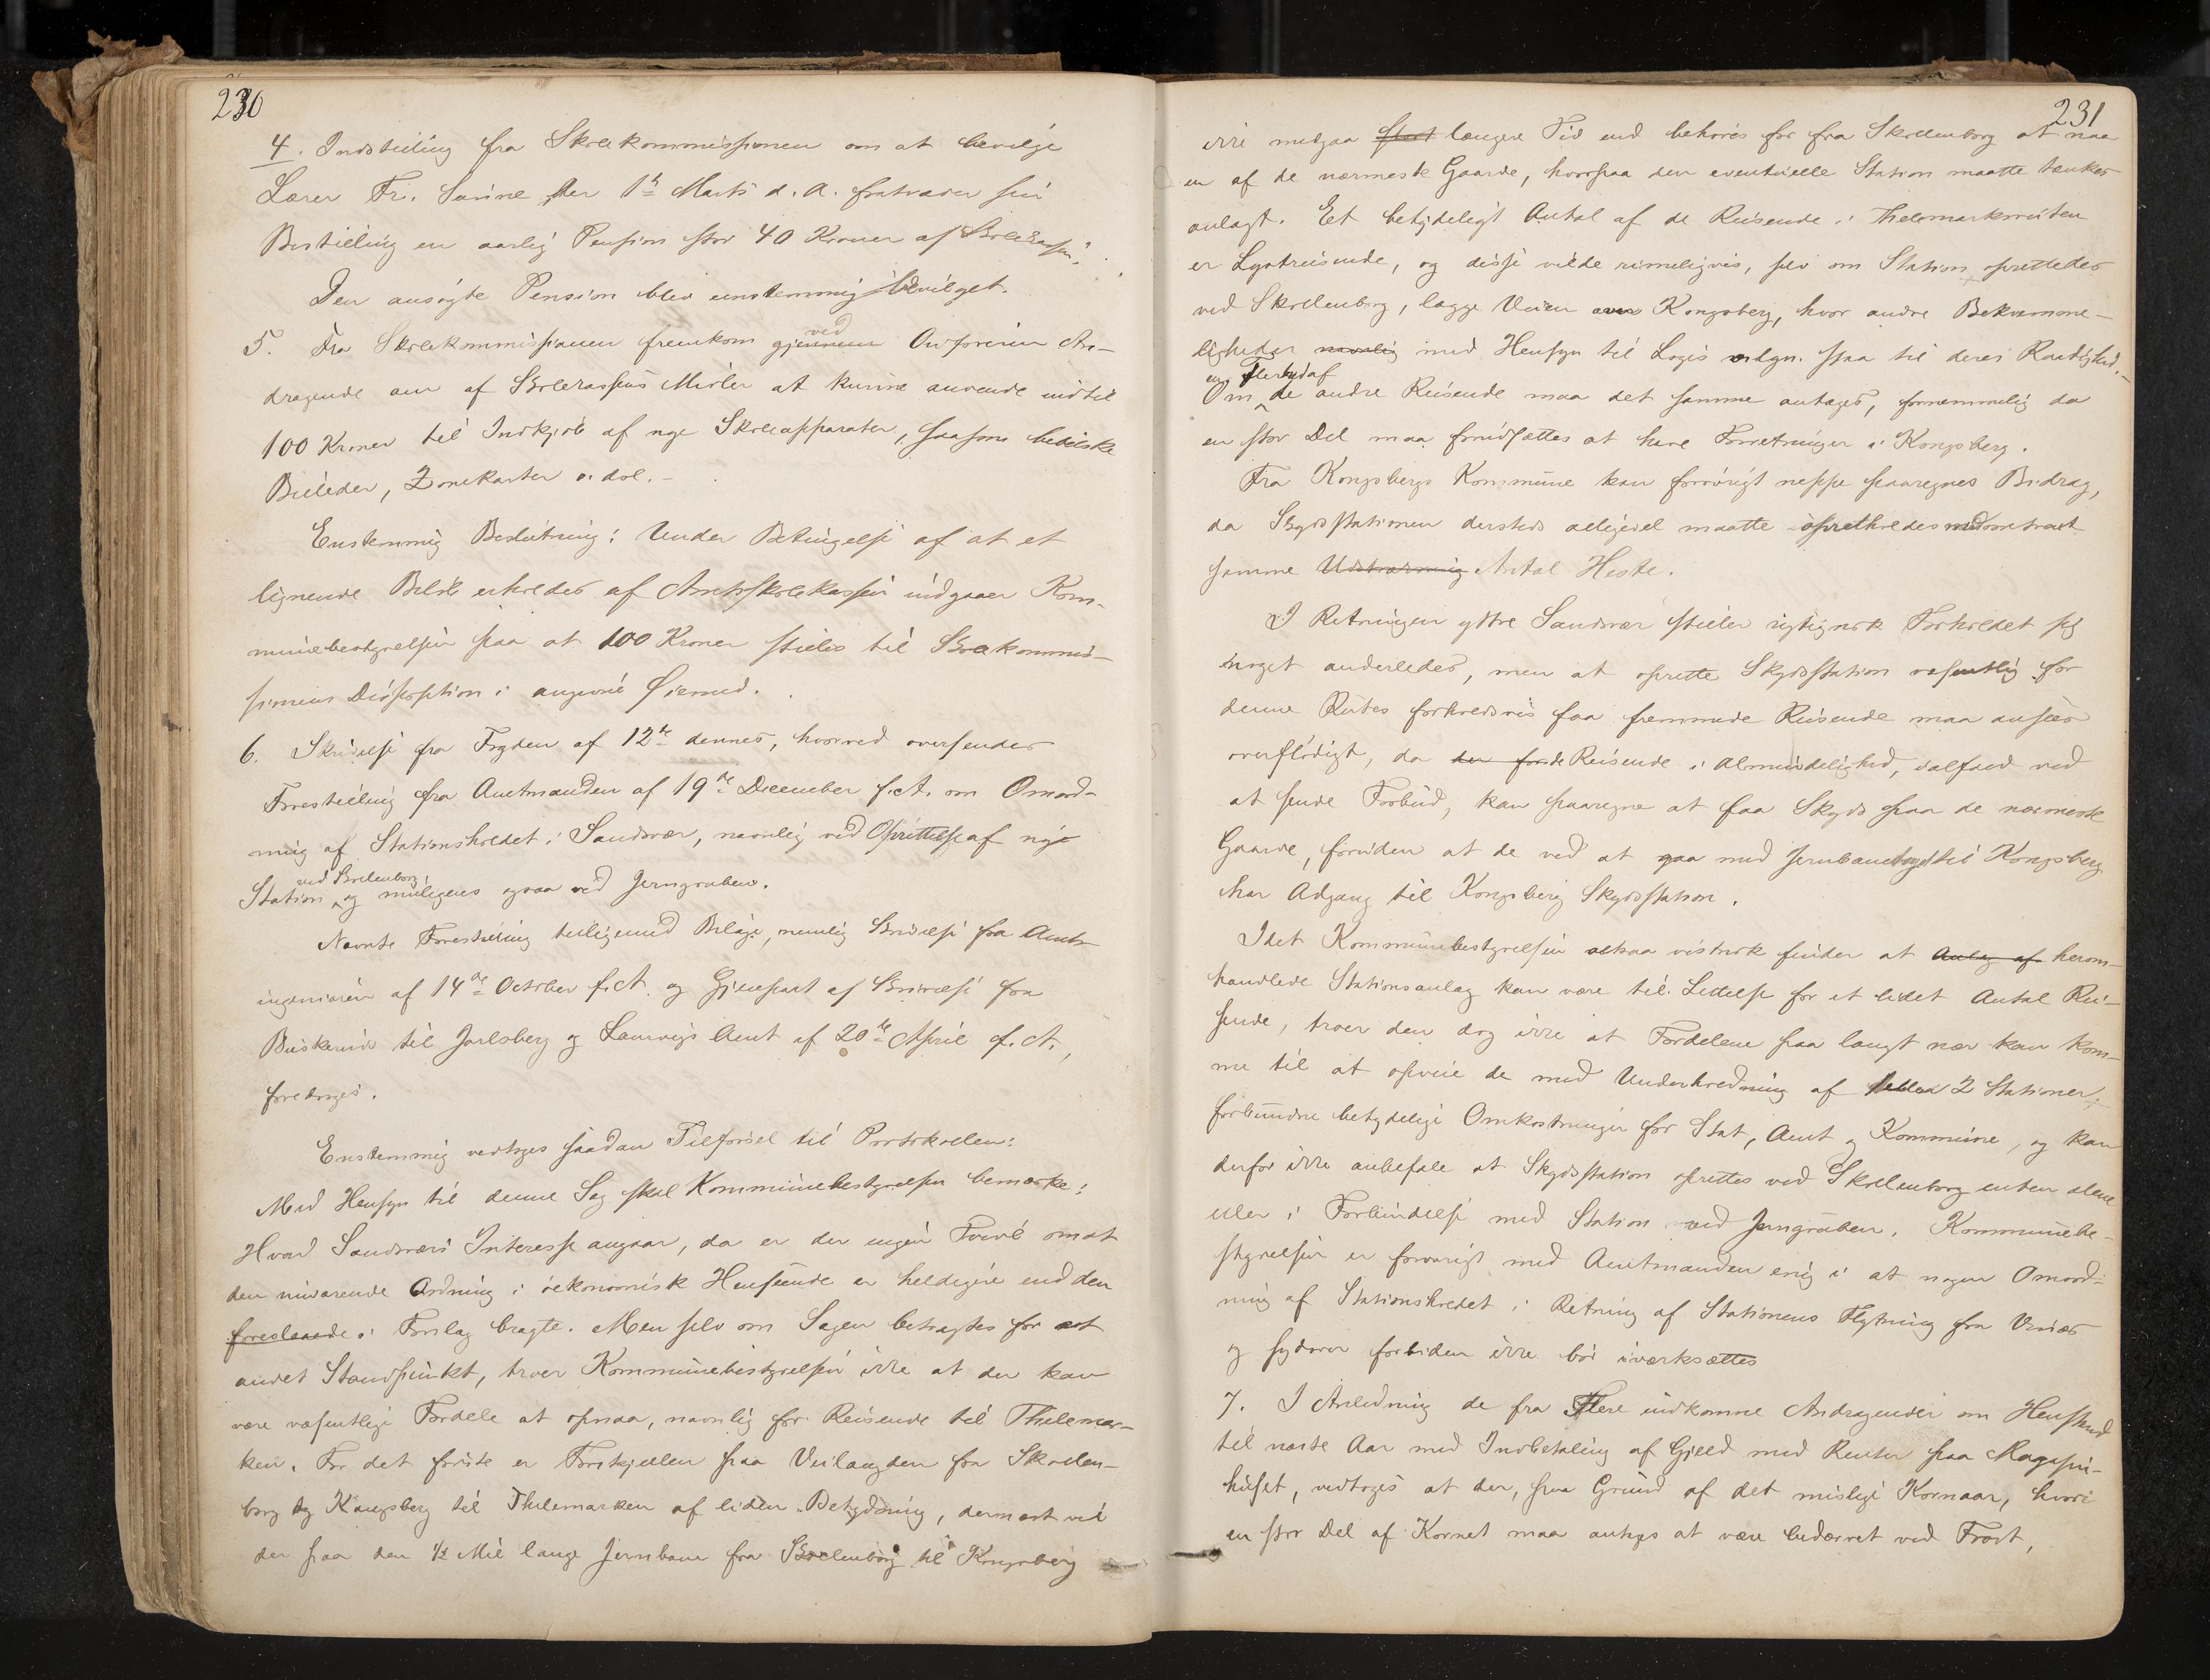 230
4. Indstilling fra Skolekommissionen om at bevilge
Lærer Fr. der 1ste Marts d. A. fratræder sin
Bestilling en aarlig Pension stor 40 Kroner af Skolekassen.
Den ansøgte Pension blev eenstemmig bevilget.
5. Fra Skolekommissionen fremkom gjennem ved Ordføreren An-
dragende om af Skolekassens Midler at kunne anvende indtil
100 Kroner til Indkjøb af nye Skoleapparater, saasom bibelske
Billeder, Zonekarter o. dsl. -
Enstemmig Beslutning: Under Betingelse af at et
lignende Beløb erholdes af Amtsskolekassen indgaaer Kom-
munebestyrelsen paa at 100 Kroner stilles til Skolekommis-
sionens Disposition i angivne Øiemed.
6. Skrivelse fra Fogden af 12te dennes, hvorved oversendes
Forestilling fra Amtmanden af 19de December f. A. om Omord-
ning af Stationsholdet i Sandsvær, navnlig ved Oprettelse af nye
ved Skollenborg,
Station og muligens ogsaa ved Jerngruben.
Nævnte Forestilling tilligemed Bilage, nemlig Skrivelse fra Amts-
ingeniøren af 14de October f. A. og Gjenpart af Skrivelse fra
Buskerud til Jarlsberg og Laurvigs Amt af 20de April f. A.,
foretoges.
Enstemmig vedtoges saadan Tilførsel til Protokollen:
Med Hensyn til denne Sag skal Kommunebestyrelsen bemærke:
Hvad Sandsværs Interesse angaar, da er der ingen Tvivl om at
den nuværende Ordning i økonomisk Henseende er heldigere end den
foreslaaede i Forslag bragte. Men selv om Sagen betragtes fra et
andet Standpunkt, troer Kommunebestyrelsen ikke at der kan
være væsentlige Fordele at opnaa, navnlig for Reisende til Thelemar-
ken. For det første er Forskjellen paa Veilængden fra Skollen-
borg og Kongsberg til Thelemarken af liden Betydning, dernæst vil
der paa den 1/2 Mil lange Jernbane fra Skollenborg til Kongsberg
231
ikke medgaa stort længere Tid end behøves for fra Skollenborg at naa
en af de nærmeste Gaarde, hvorpaa den eventuelle Station maatte tænkes
anlagt. Et betydeligt Antal af de Reisende i Thelemarksruten
er Lystreisende, og disse vilde rimeligvis, selv om Station oprettedes
ved Skollenborg, lægge Veien over Kongsberg, hvor andre Bekvemme-
ligheder navnlig med Hensyn til Logis o. lgn. staa til deres Raadighed.
en Flerhed af
Om de andre Reisende maa det samme antages, fornemmelig da
en stor Del maa forudsættes at have Forretninger i Kongsberg.
Fra Kongsbergs Kommune kan forøvrigt neppe paaregnes Bidrag,
da Skydsstationen dersteds alligevel maatte opretholdes med omtrent
samme Udstrækning Antal Heste.
I Retningen ydtre Sandsvær stiller rigtignok Forholdet sig
noget anderledes, men at oprette Skydsstation væsentlig for
denne Rutes forholdsvis faa fremmede Reisende maa ansees
overflødigt, da der for de Reisende i Almindelighed, ialfald ved
at sende Forbud, kan paaregne at faa Skyds paa de nærmeste
Gaarde, foruden at de ved at gaa med Jernbanetoget til Kongsberg
har Adgang til Kongsberg Skydsstation.
Idet Kommunebestyrelsen altsaa vistnok finder at Anlæg af herom-
handlede Stationsanlæg kan være til Lettelse for et lidet Antal Rei-
sende, troer den dog ikke at Fordelene paa langt nær kan kom-
me til at opveie de med Underholdning af 2 Stationer
forbundne betydelige Omkostninger for Stat, Amt og Kommune, og kan
derfor ikke anbefale at Skydsstation oprettes ved Skollenborg enten alene
eller i Forbindelse med Station ved Jerngruben. Kommunebe-
styrelsen er forøvrigt med Amtmanden enig i at nogen Omord-
ning af Stationsholdet i Retning af Stationens Flytning fra
og sydover fortiden ikke bør iværksættes
7. I Anledning de fra Flere indkomne Andragender om Henstand
til næste Aar med Indbetaling af Gjeld med Renter paa Magasin-
huset, vedtoges at der, paa Grund af det mislige Kornaar, hvori
en stor Del af Kornet maa antages at være bedærvet ved Frost,